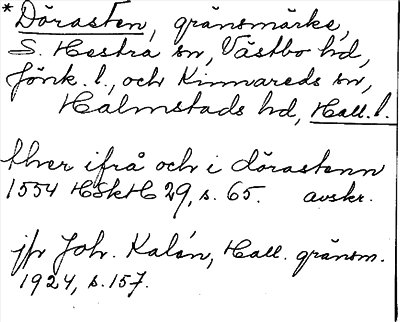 *Dörasten, gränsmärke,
S. Hestra sn, Västbo hd,
Jönk. l., och Kinnareds sn,
Halmstads hd, Hall. l.
thver ifrå och i dörastenn
1554 HSkH 29, s. 65. avskr.
jfr Joh. Kalén, Hall. gränsm.
1924, s. 157.